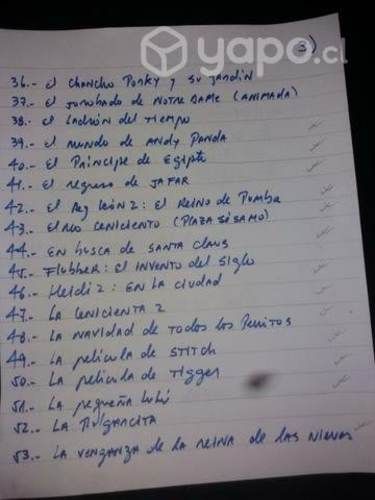 yapo.cl
3)
36.- El Chancho Porky y su Jardín
37.- El Jorobado de NOTRE DAME (ANIMADA)
38.- El Ladrón del Tiempo
39.- El mundo de Andy Panda
40.- El Príncipe de Egipto
41.- El regreso de JAFAR
42.- El Rey León 2: El Reino de Pumba
43.- El Río CENICIENTO (PLAZA SÉSAMO)
44.- EN busca de SANTA Claus
45.- Flubber: El INVENTO del Siglo
46.- Heidi 2: EN LA CIUDAD
47.- LA CENICIENTA 2
48.- LA NAVIDAD de Todos los Perritos
49.- LA película de STITCH
50.- LA película de Tigger
51.- LA pequeña Lulú
52.- LA PulGARCITA
53.- LA VENGANZA de LA REINA de LAS NIEVES